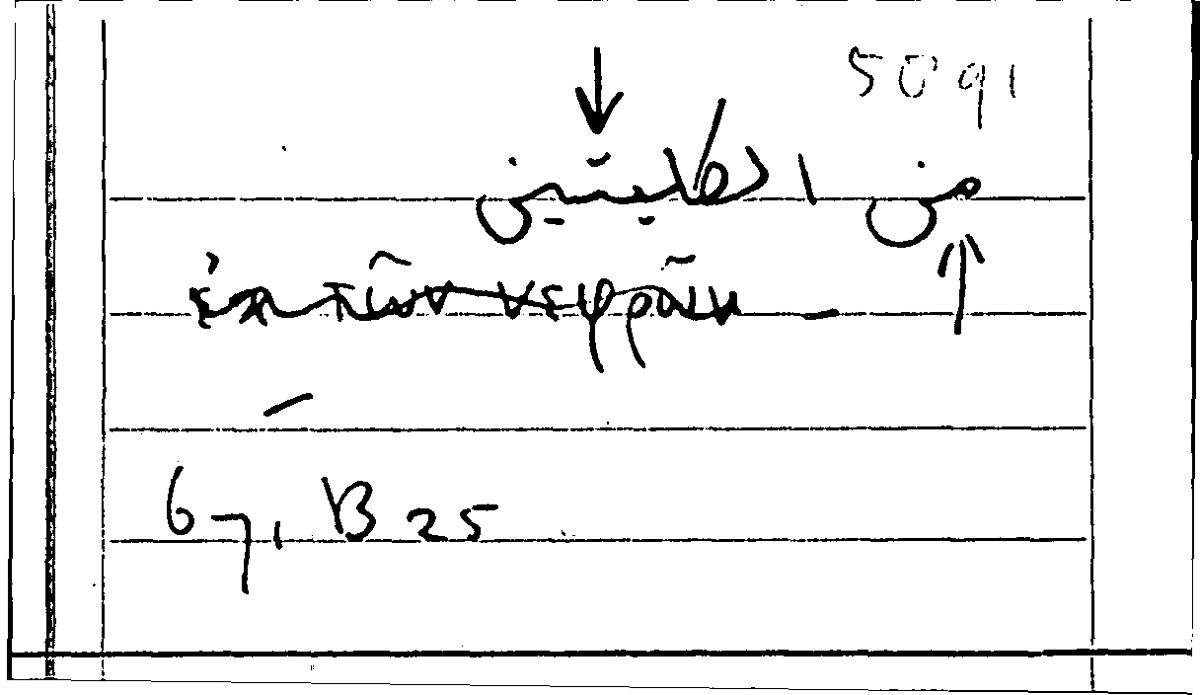 5091
من الكليتين
ἐκ τῶν νεφρῶν –
67, B 25